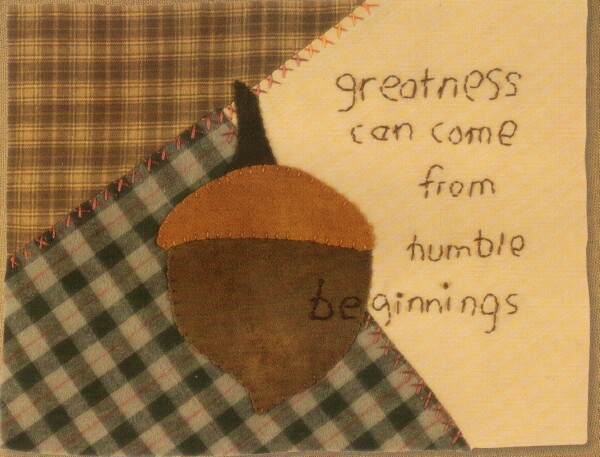 greatness
can come
from
humble
beginnings